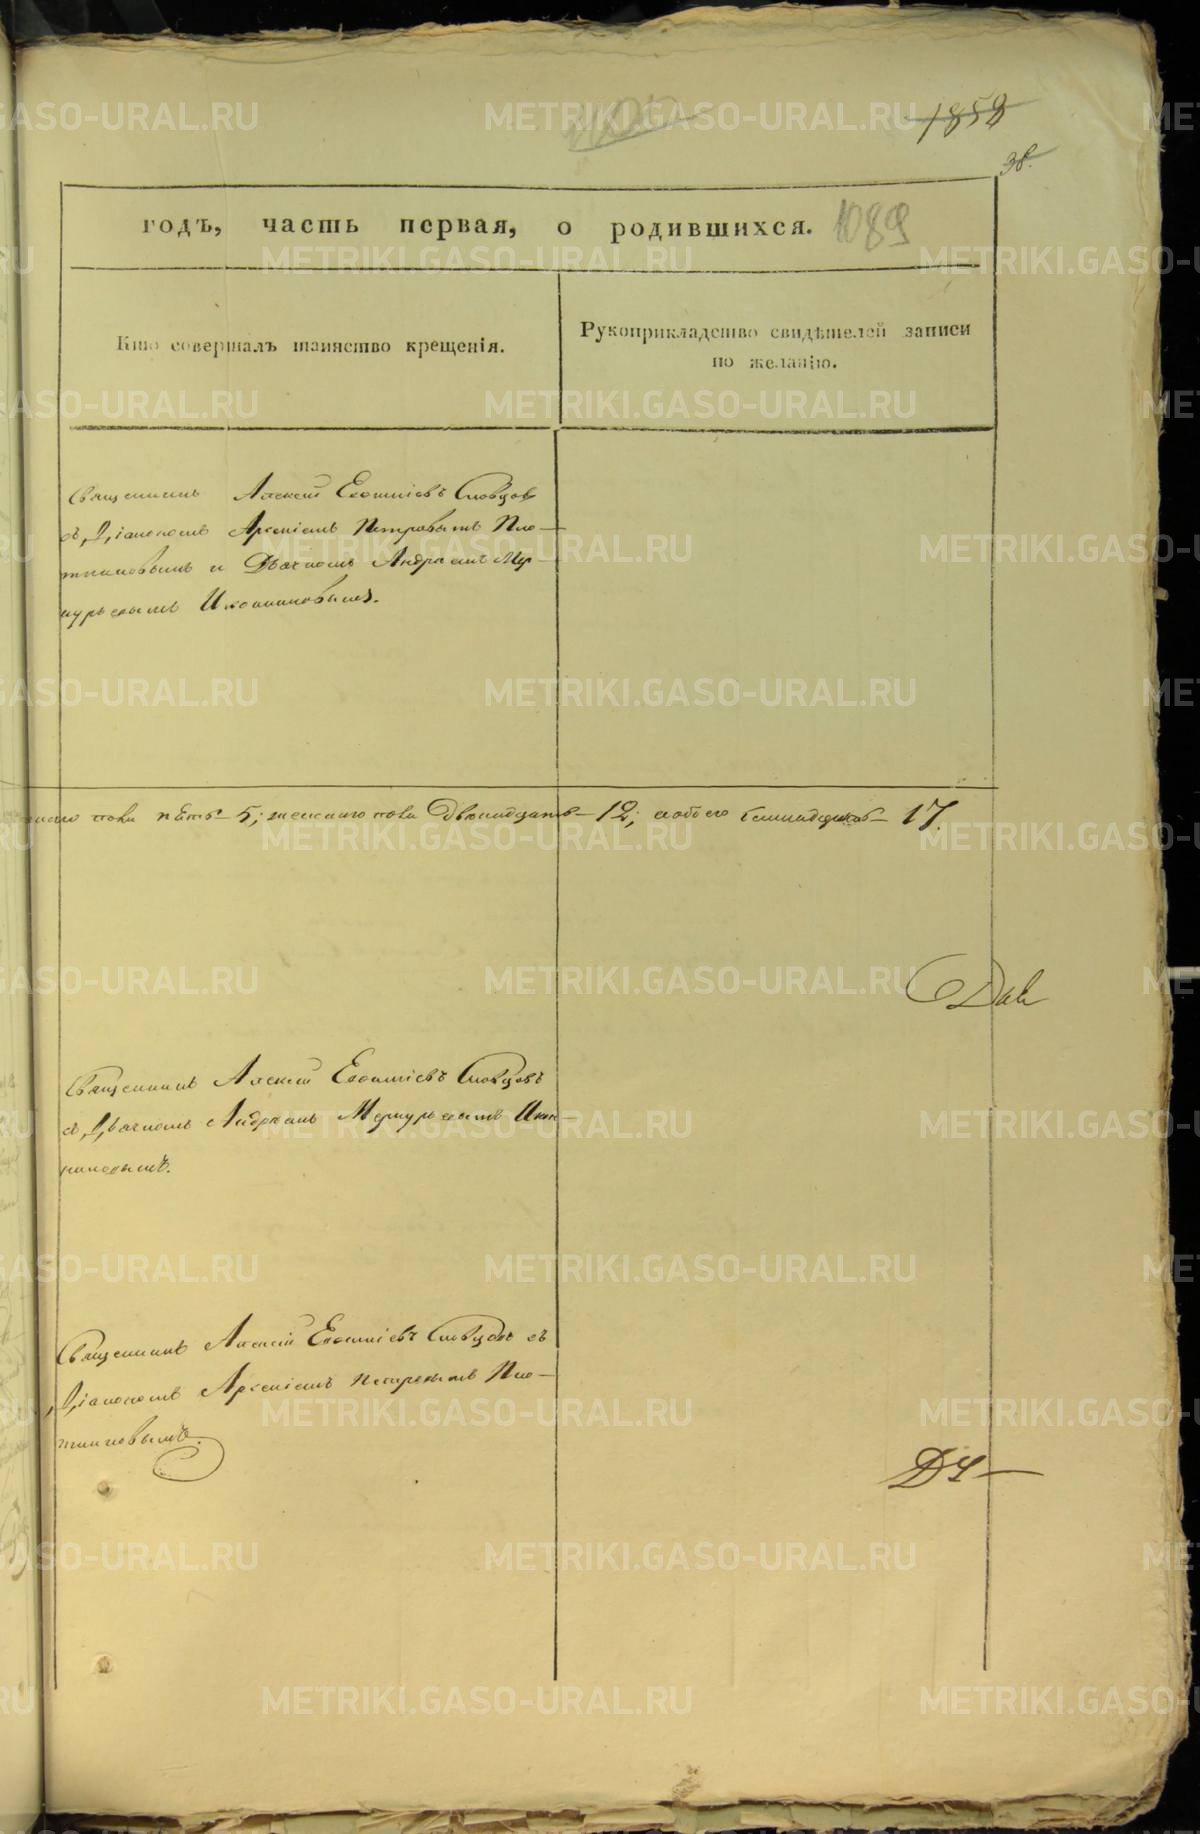 1858
38.
годъ, часть первая, о родившихся. 1089
Кто совершалъ таинство крещенія.
Рукоприкладство свидѣтелей записи
по желанію.
Священникъ Алексій Словцовъ
съ Діакономъ Арсеніемъ Петровымъ Пло-
тниковымъ и Дьячкомъ Андреемъ Мер-
курьевымъ Иконниковымъ.
пола пять - 5; женскаго пола Двенадцать - 12; обоего семнадцать - 17.
Священникъ Алексій Словцовъ
съ Дьячкомъ Андреемъ Меркурьевымъ Икон-
никовымъ.
Священникъ Алексій Словцовъ съ
Діакономъ Арсеніемъ Петровымъ Пло-
тниковымъ.
METRIKI.GASO-URAL.RU